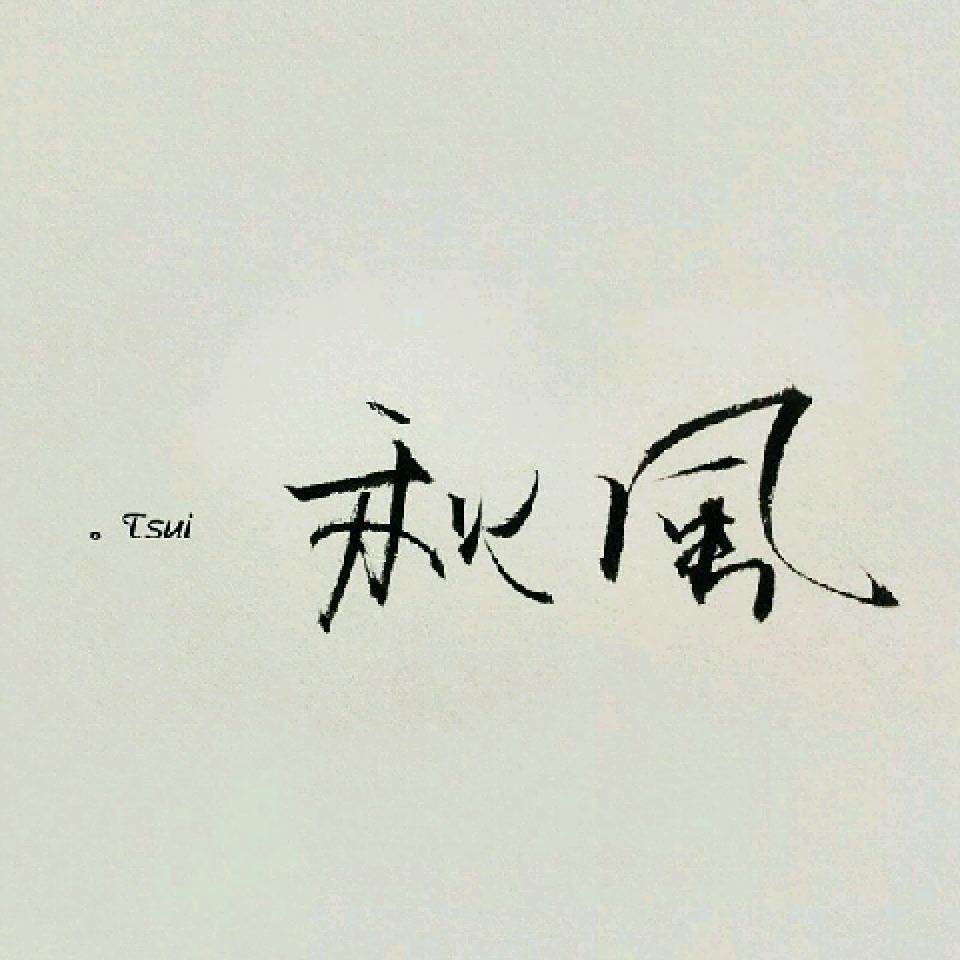 秋風
。Tsui